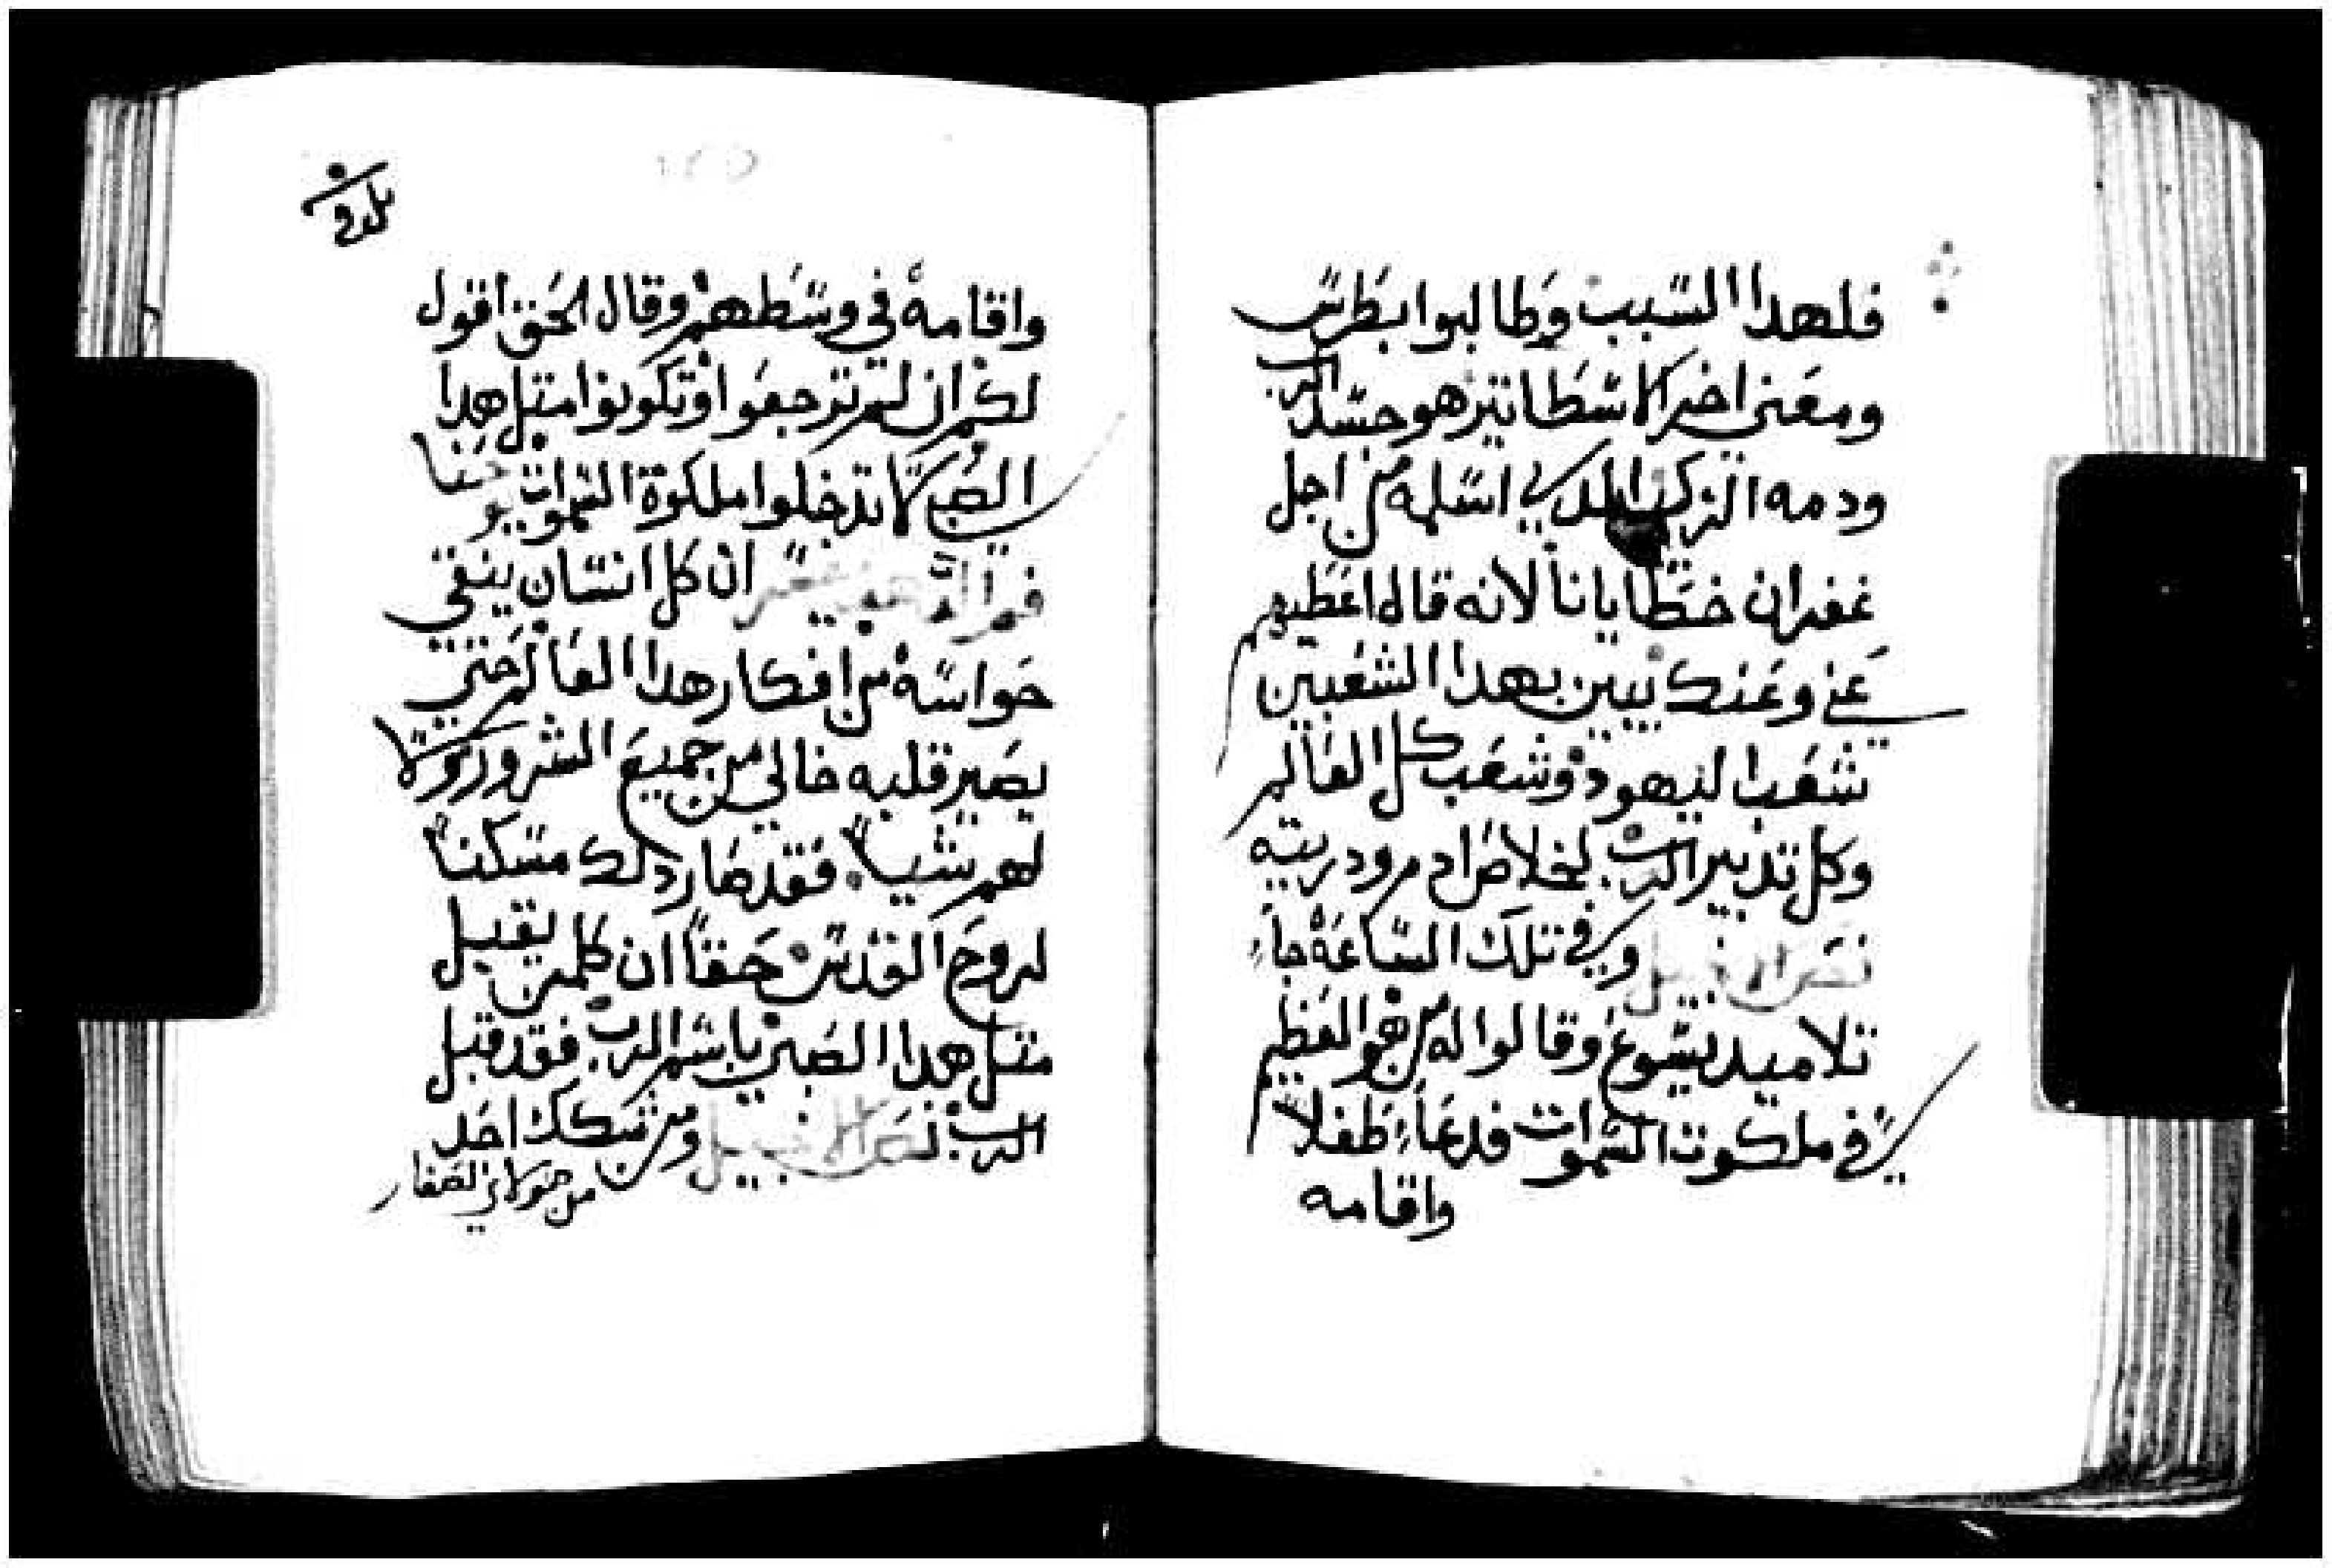 فلهدا السبب وطالبوا بطرس
ومعنى اخر الاسطاتير هو جسد الرب
ودمه الزكي الدي اسلمه من اجل
غفران خطايانا لانه قال اعطيهم
عني وعنك يبين بهدا الشعبين
شعب اليهود وشعب كل العالم
وكل تدبير الرب لخلاص ادم ودريته
نص الانجيل وفي تلك الساعة جاء
تلاميد يسوع وقالوا له من هو العظيم
في ملكوت السموات فدعاء طفلا
واقامه
واقامه في وسطهم وقال الحق اقول
لكم ان لم ترجعوا وتكونوا متل هدا
الصبي لا تدخلوا ملكوة السموات
ان كل انسان ينقي
حواسه من افكار هدا العالم حتي
يصير قلبه خالي من جميع الشرور ولا
لهم شيا فقد صار دلك مسكنا
لروح القدس حقا ان كلمن يقبل
متل هدا الصبي باسم الرب فقد قبل
الرب نص الانجيل ومن شكك احد
من هولاي الصغار